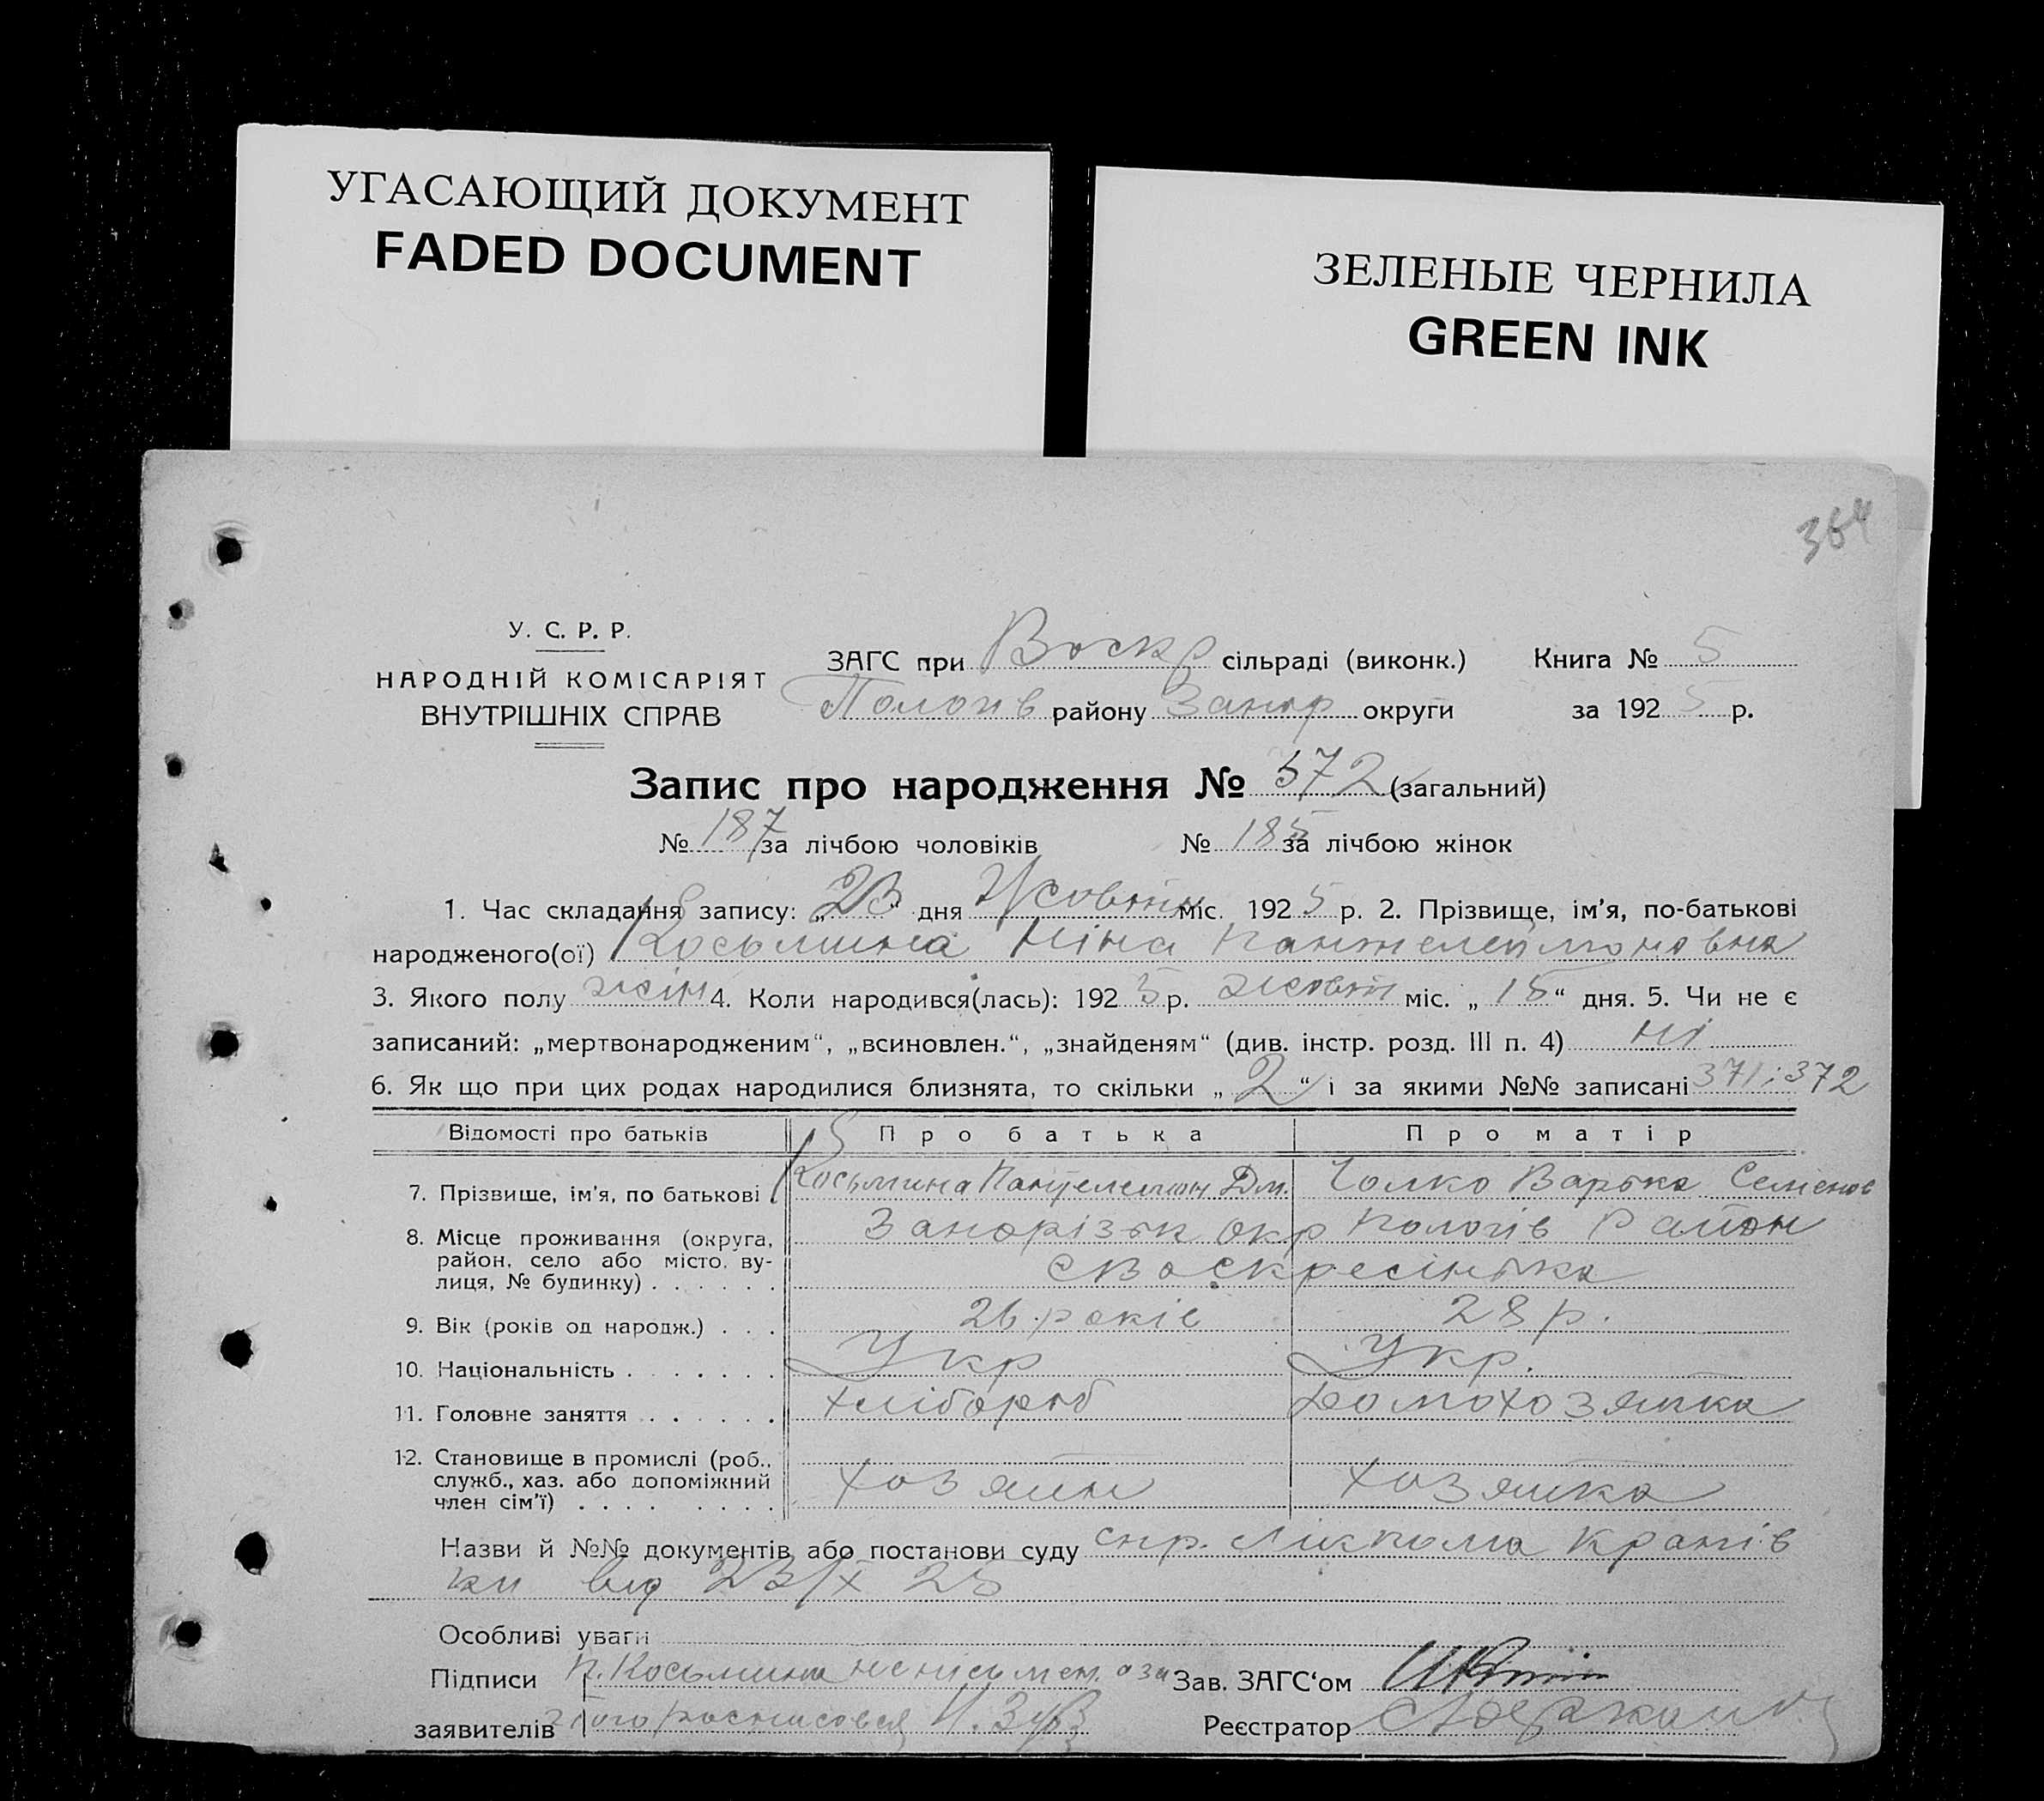 УГАСАЮЩИЙ ДОКУМЕНТ
FADED DOCUMENT
ЗЕЛЕНЫЕ ЧЕРНИЛА
GREEN INK
364
У. С. Р. Р.
НАРОДНІЙ КОМІСАРІЯТ
ВНУТРІШНІХ СПРАВ
ЗАГС при Воскр сільраді (виконк.) Книга № 5
Пологів району Запор округи за 192 5 р.
Запис про народження № 372 (загальний)
№ 187 за лічбою чоловіків № 185 за лічбою жінок
1. Час складання запису: „ 23 “ дня Жовтн міс. 192 5 р. 2. Прізвище, ім'я, по-батькові
народженого(ої) Косьмина Ніна Пантелеймоновна
3. Якого полу жін 4. Коли народився(лась): 192 5 р. жовт міс. „ 15 “ дня. 5. Чи не є
записаний: „мертвонародженим“, „всиновлен.“, „знайденям“ (див. інстр. розд. III п. 4) ні
6. Як що при цих родах народилися близнята, то скільки „ 2 “ і за якими №№ записані 371 і 372
Відомості про батьків Про батька Про матір
7. Прізвище, ім'я, по батькові Косьмина Пантелемон Дм. Чолко Варька Семенов
8. Місце проживання (округа, район, село або місто, вулиця, № будинку) Запорізьк окр Пологів Район
с Воскресінька
9. Вік (років од народж.) 26 років 28 р.
10. Національність Укр Укр.
11. Головне заняття хлібороб Домохозяйка
12. Становище в промислі (роб., служб., хаз. або допоміжний член сім'ї) хозяин хозяйка
Назви й №№ документів або постанови суду спр. Лікпома
від 23/X 25
Особливі уваги
Підписи П. Косьмина неписьмен. а за Зав. ЗАГС'ом
заявителів його росписовся Реєстратор